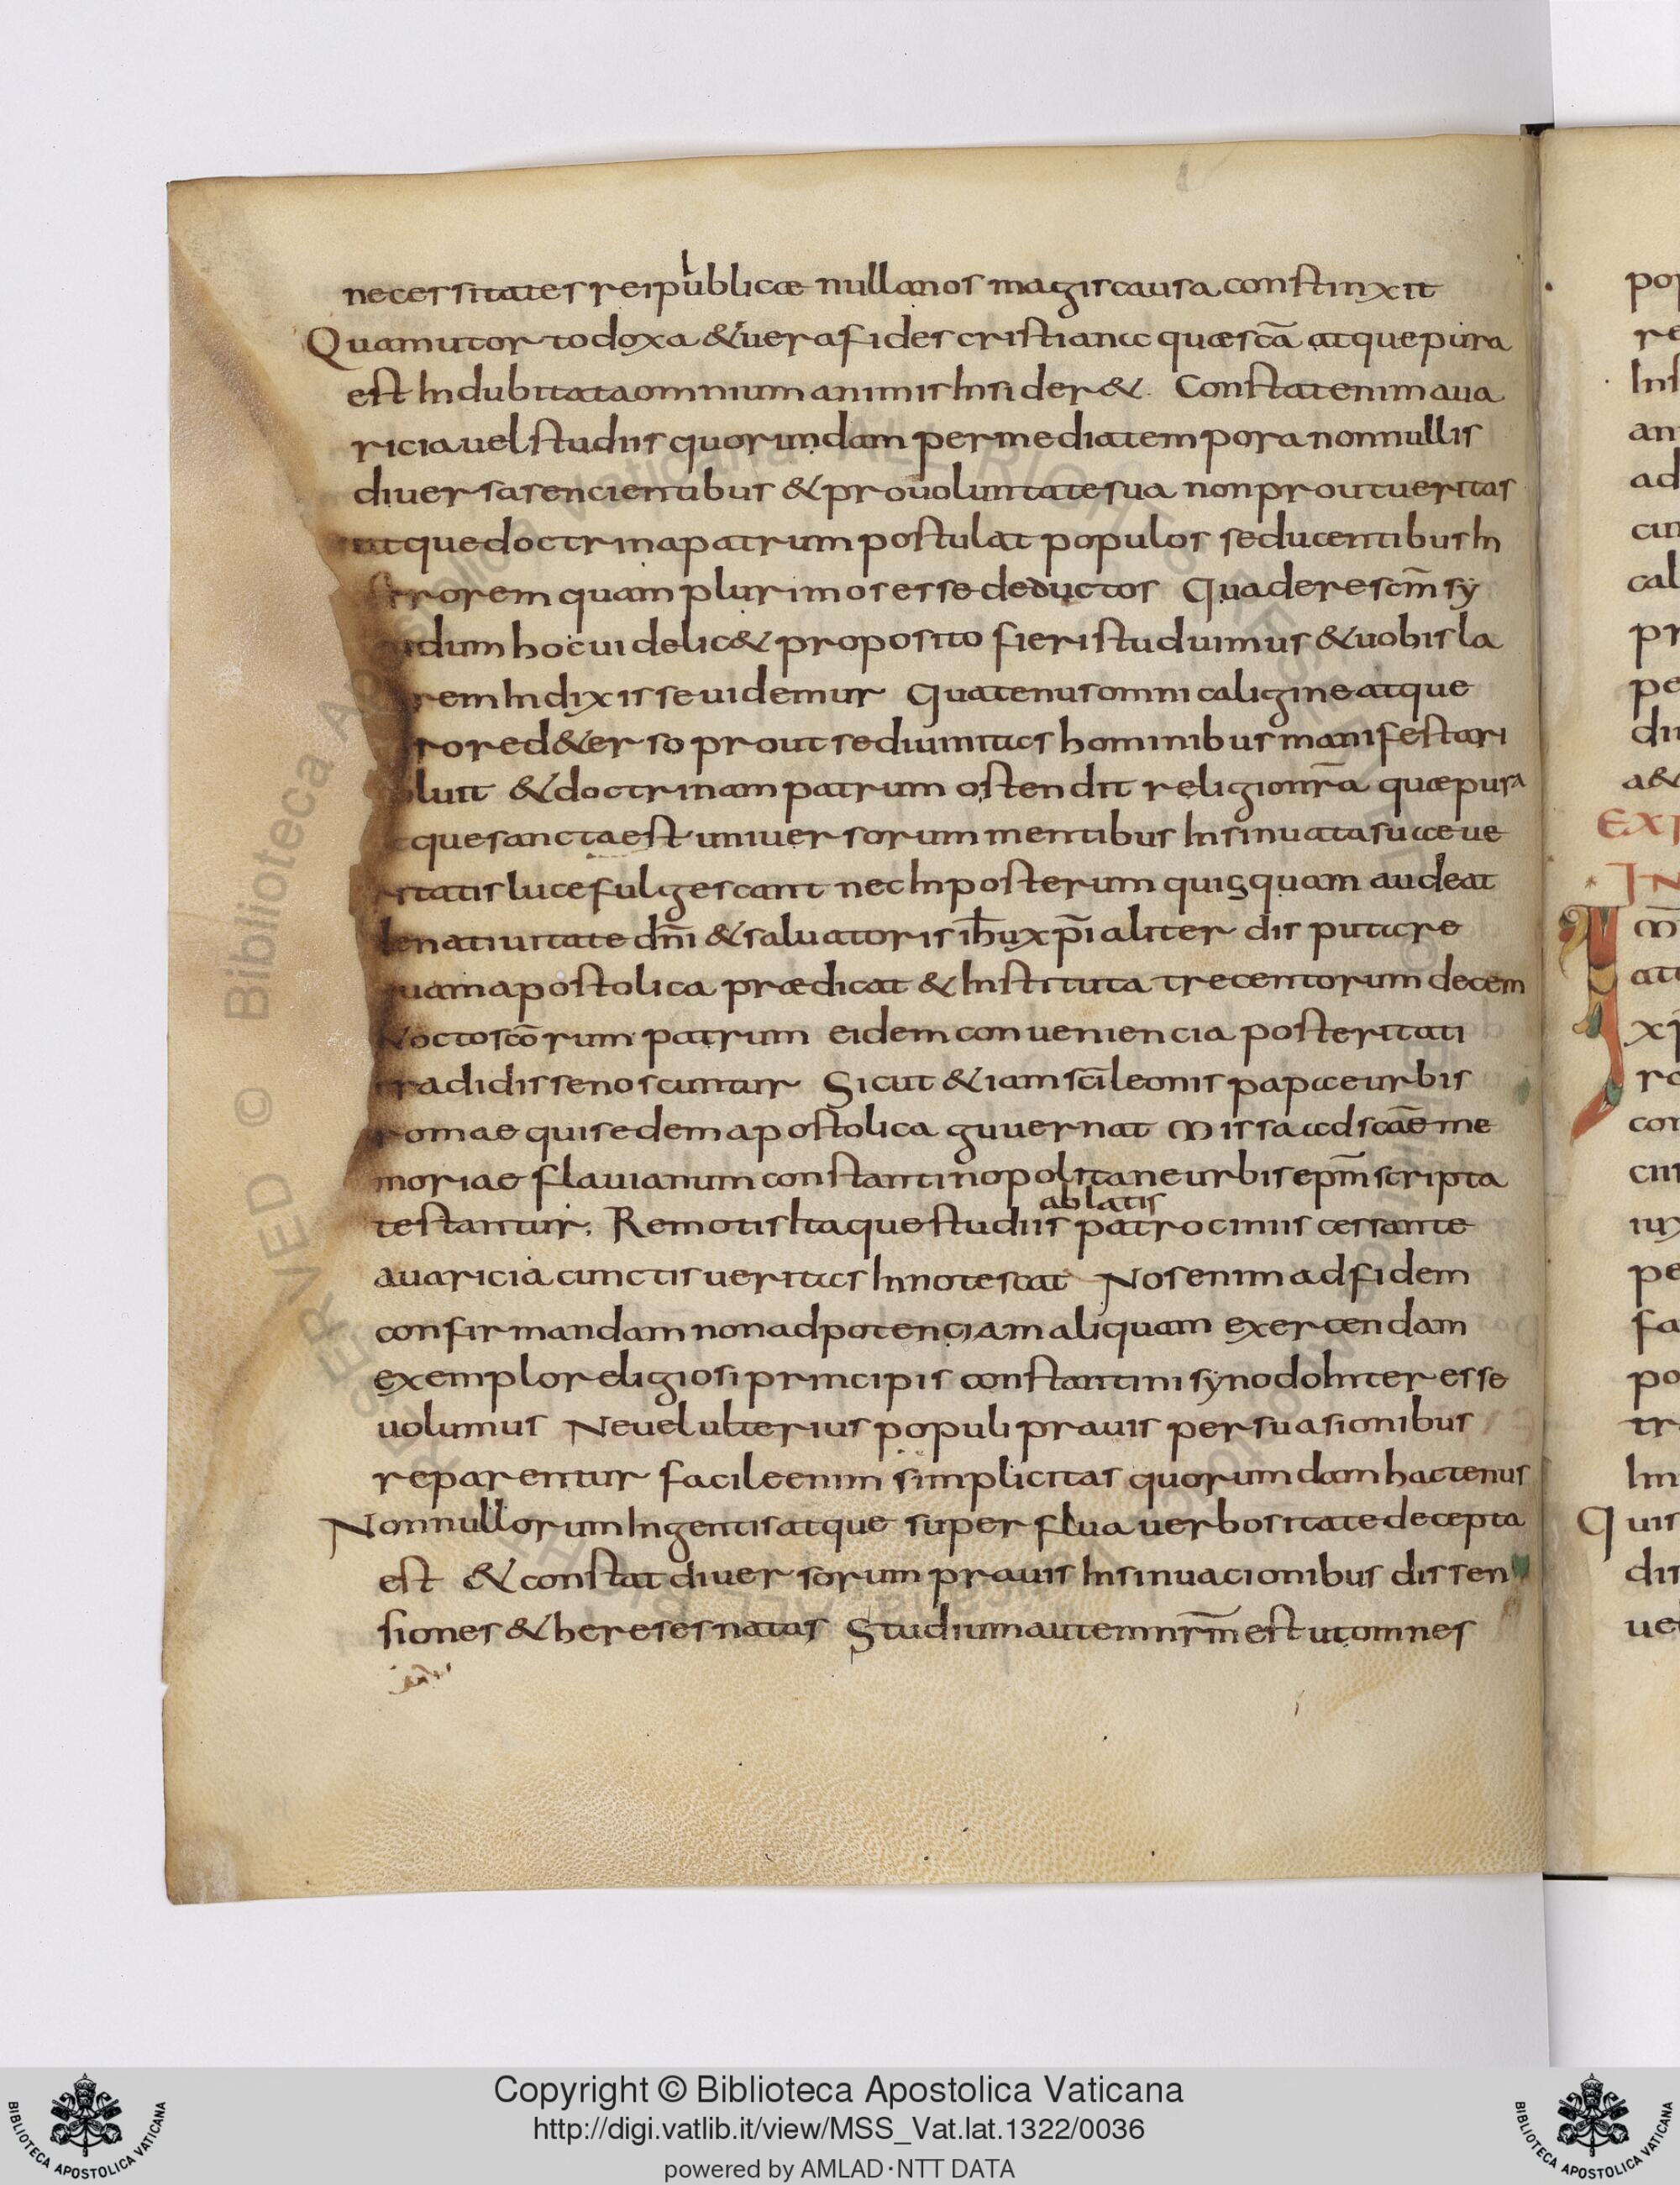 necessitates rei publicæ nulla nos magis causa constinxit
Quam ut ortodoxa & uera fides cristiana quæ scā atque pura
est Indubitata omnium animis Insider& Constat enim aua
ricia uel studiis quorundam per media tempora nonnullis
diuersa sencientibus & pro uoluntate sua non prout ueritas
atque doctrina patrum postulat populos seducentibus In
errorem quam plurimos esse deductos Qua de re scm̄ sy
dum hoc uidelic& proposito fieri studuimus & uobis la
rem Indixisse uidemur Quatenus omni caligine atque
rore d&erso prout se diuinitas hominibus manifestari
luit & doctrinam patrum ostendit religio nr̄a quæ pura
que sancta est uniuersorum mentibus Insinuata suae ue
ritatis luce fulgescant nec In posterum quisquam audeat
de natiuitate dn̄i & saluatoris ih̄u xp̄i aliter disputare
quam apostolica prædicat & Instituta trecentorum decem
& octo scōrum patrum eidem conueniencia posteritati
tradidisse noscuntur Sicut & iam sc̄i leonis papae urbis
romae qui sedem apostolica guuernat Missa ad scāe me
moriae flauianum constantinopolitane urbis epm̄ scripta
ablatis
testantur; Remotis Itaque studiis patrociniis cessante
auaricia cunctis ueritas Innotescat Nos enim ad fidem
confirmandam non ad potenciam aliquam exercendam
exemplo religiosi principis constantini synodo Interesse
uolumus Ne uel ulterius populi prauis persuasionibus
reparentur facile enim simplicitas quorumdam hactenus
Nonnullorum Ingentis atque superflua uerbositate decepta
est & constat diuersorum prauis Insinuacionibus dissen
siones & hereses natas Studium autem nr̄m est ut omnes
Copyright © Biblioteca Apostolica Vaticana
http://digi.vatlib.it/view/MSS_Vat.lat.1322/0036
powered by AMLAD·NTT DATA
BIBLIOTECA APOSTOLICA VATICANA
BIBLIOTECA APOSTOLICA VATICANA